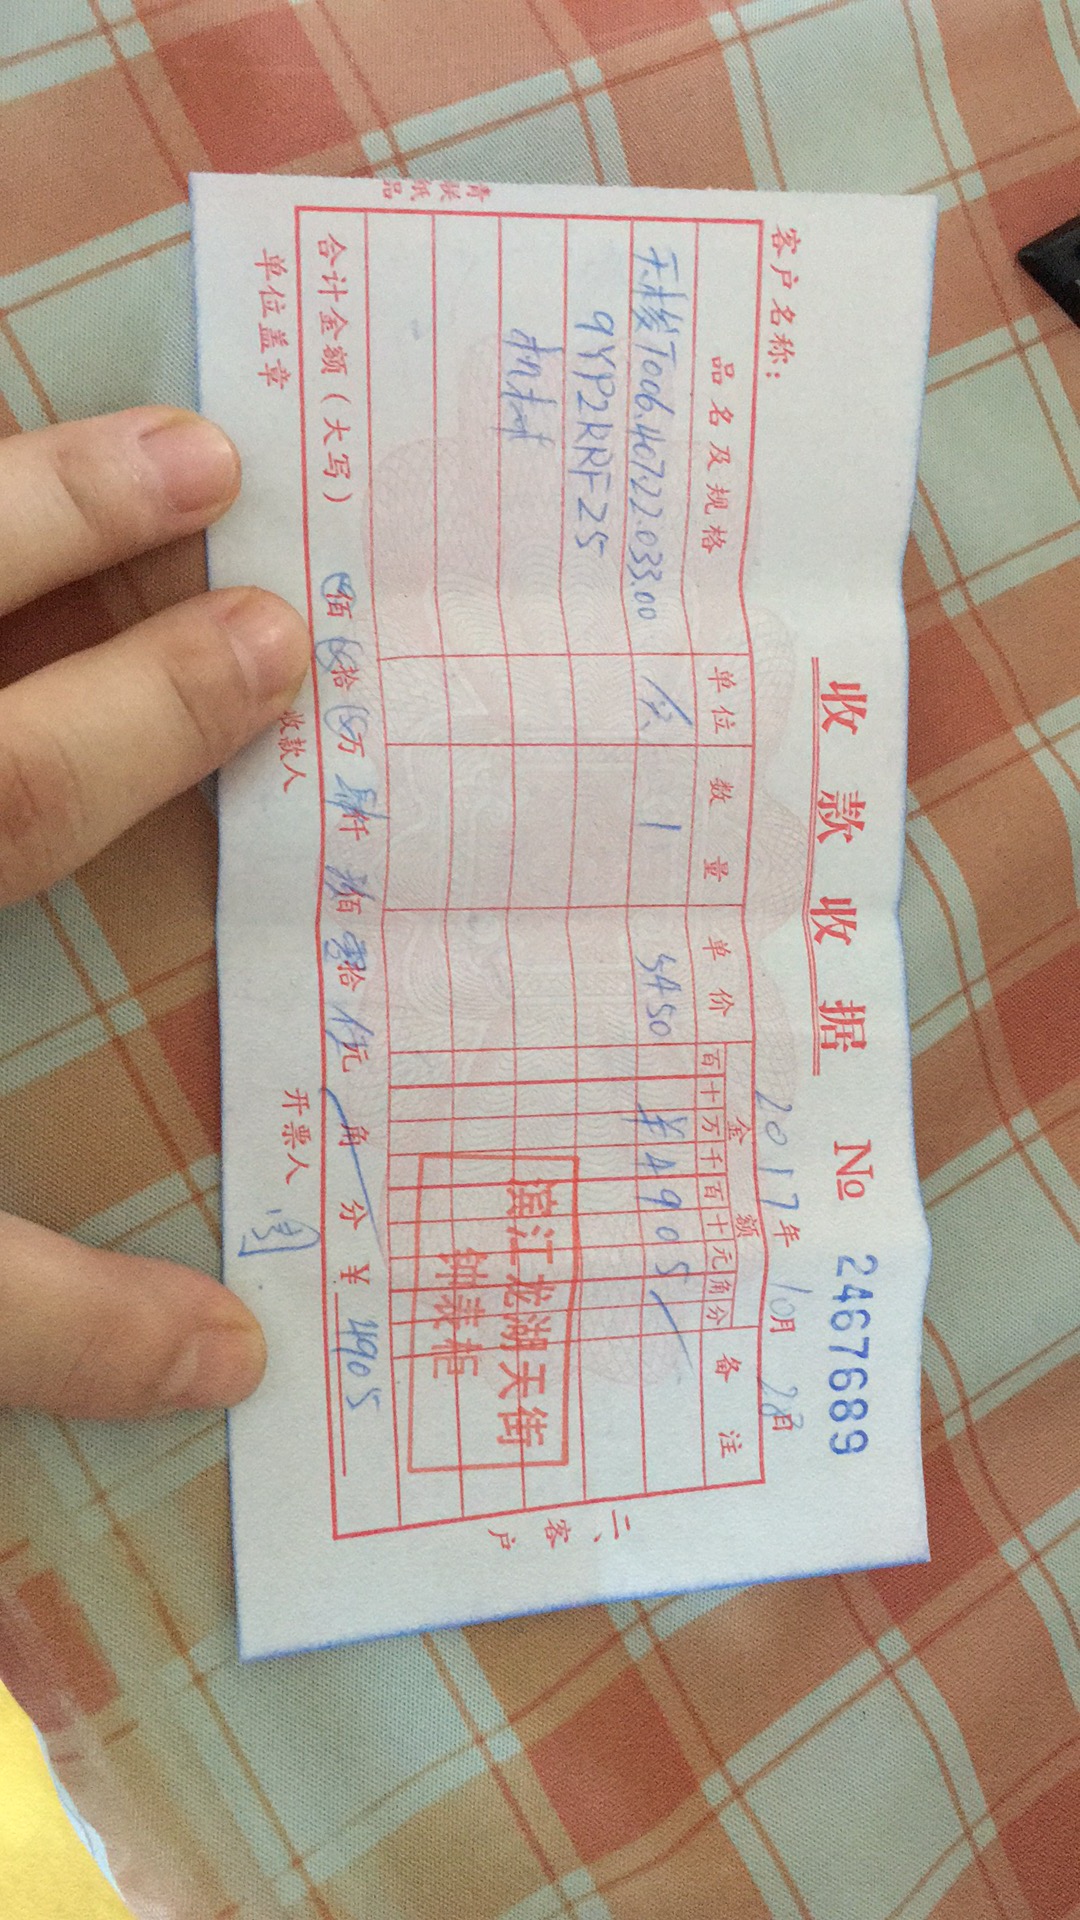 收款收据 № 2467689
客户名称： 2017年 10月 28日
品名及规格 单位 数量 单价 金额 备注
百十万千百十元角分
天梭T006.407.22.033.00 只 1 5450 ¥4905
9YP2RRF25
机械
滨江龙湖天街
钟表柜
合计金额（大写） 佰 拾 万 肆仟 玖佰 零拾 伍元 角 分 ¥ 4905
单位盖章 收款人 开票人 周
二、客户
青联纸品